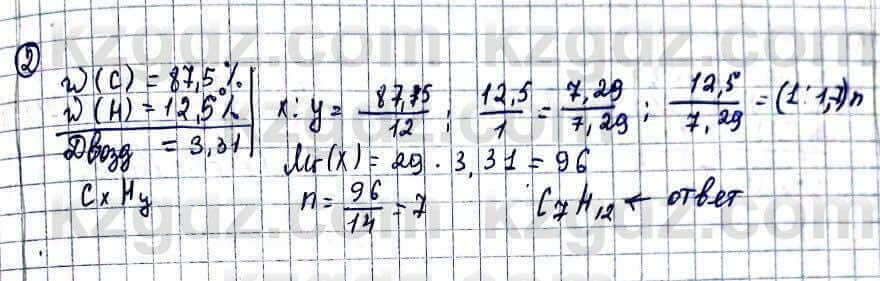 ②
w(C) = 87,5%
w(H) = 12,5%
Dвозд = 3,31
CxHy
x : y = 87,75/12 ; 12,5/1 = 7,29/7,29 ; 12,5/7,29 = (1 : 1,7)n
Mr(X) = 29 · 3,31 = 96
n = 96/14 = 7
C₇H₁₂ ← ответ
kzgdz.com